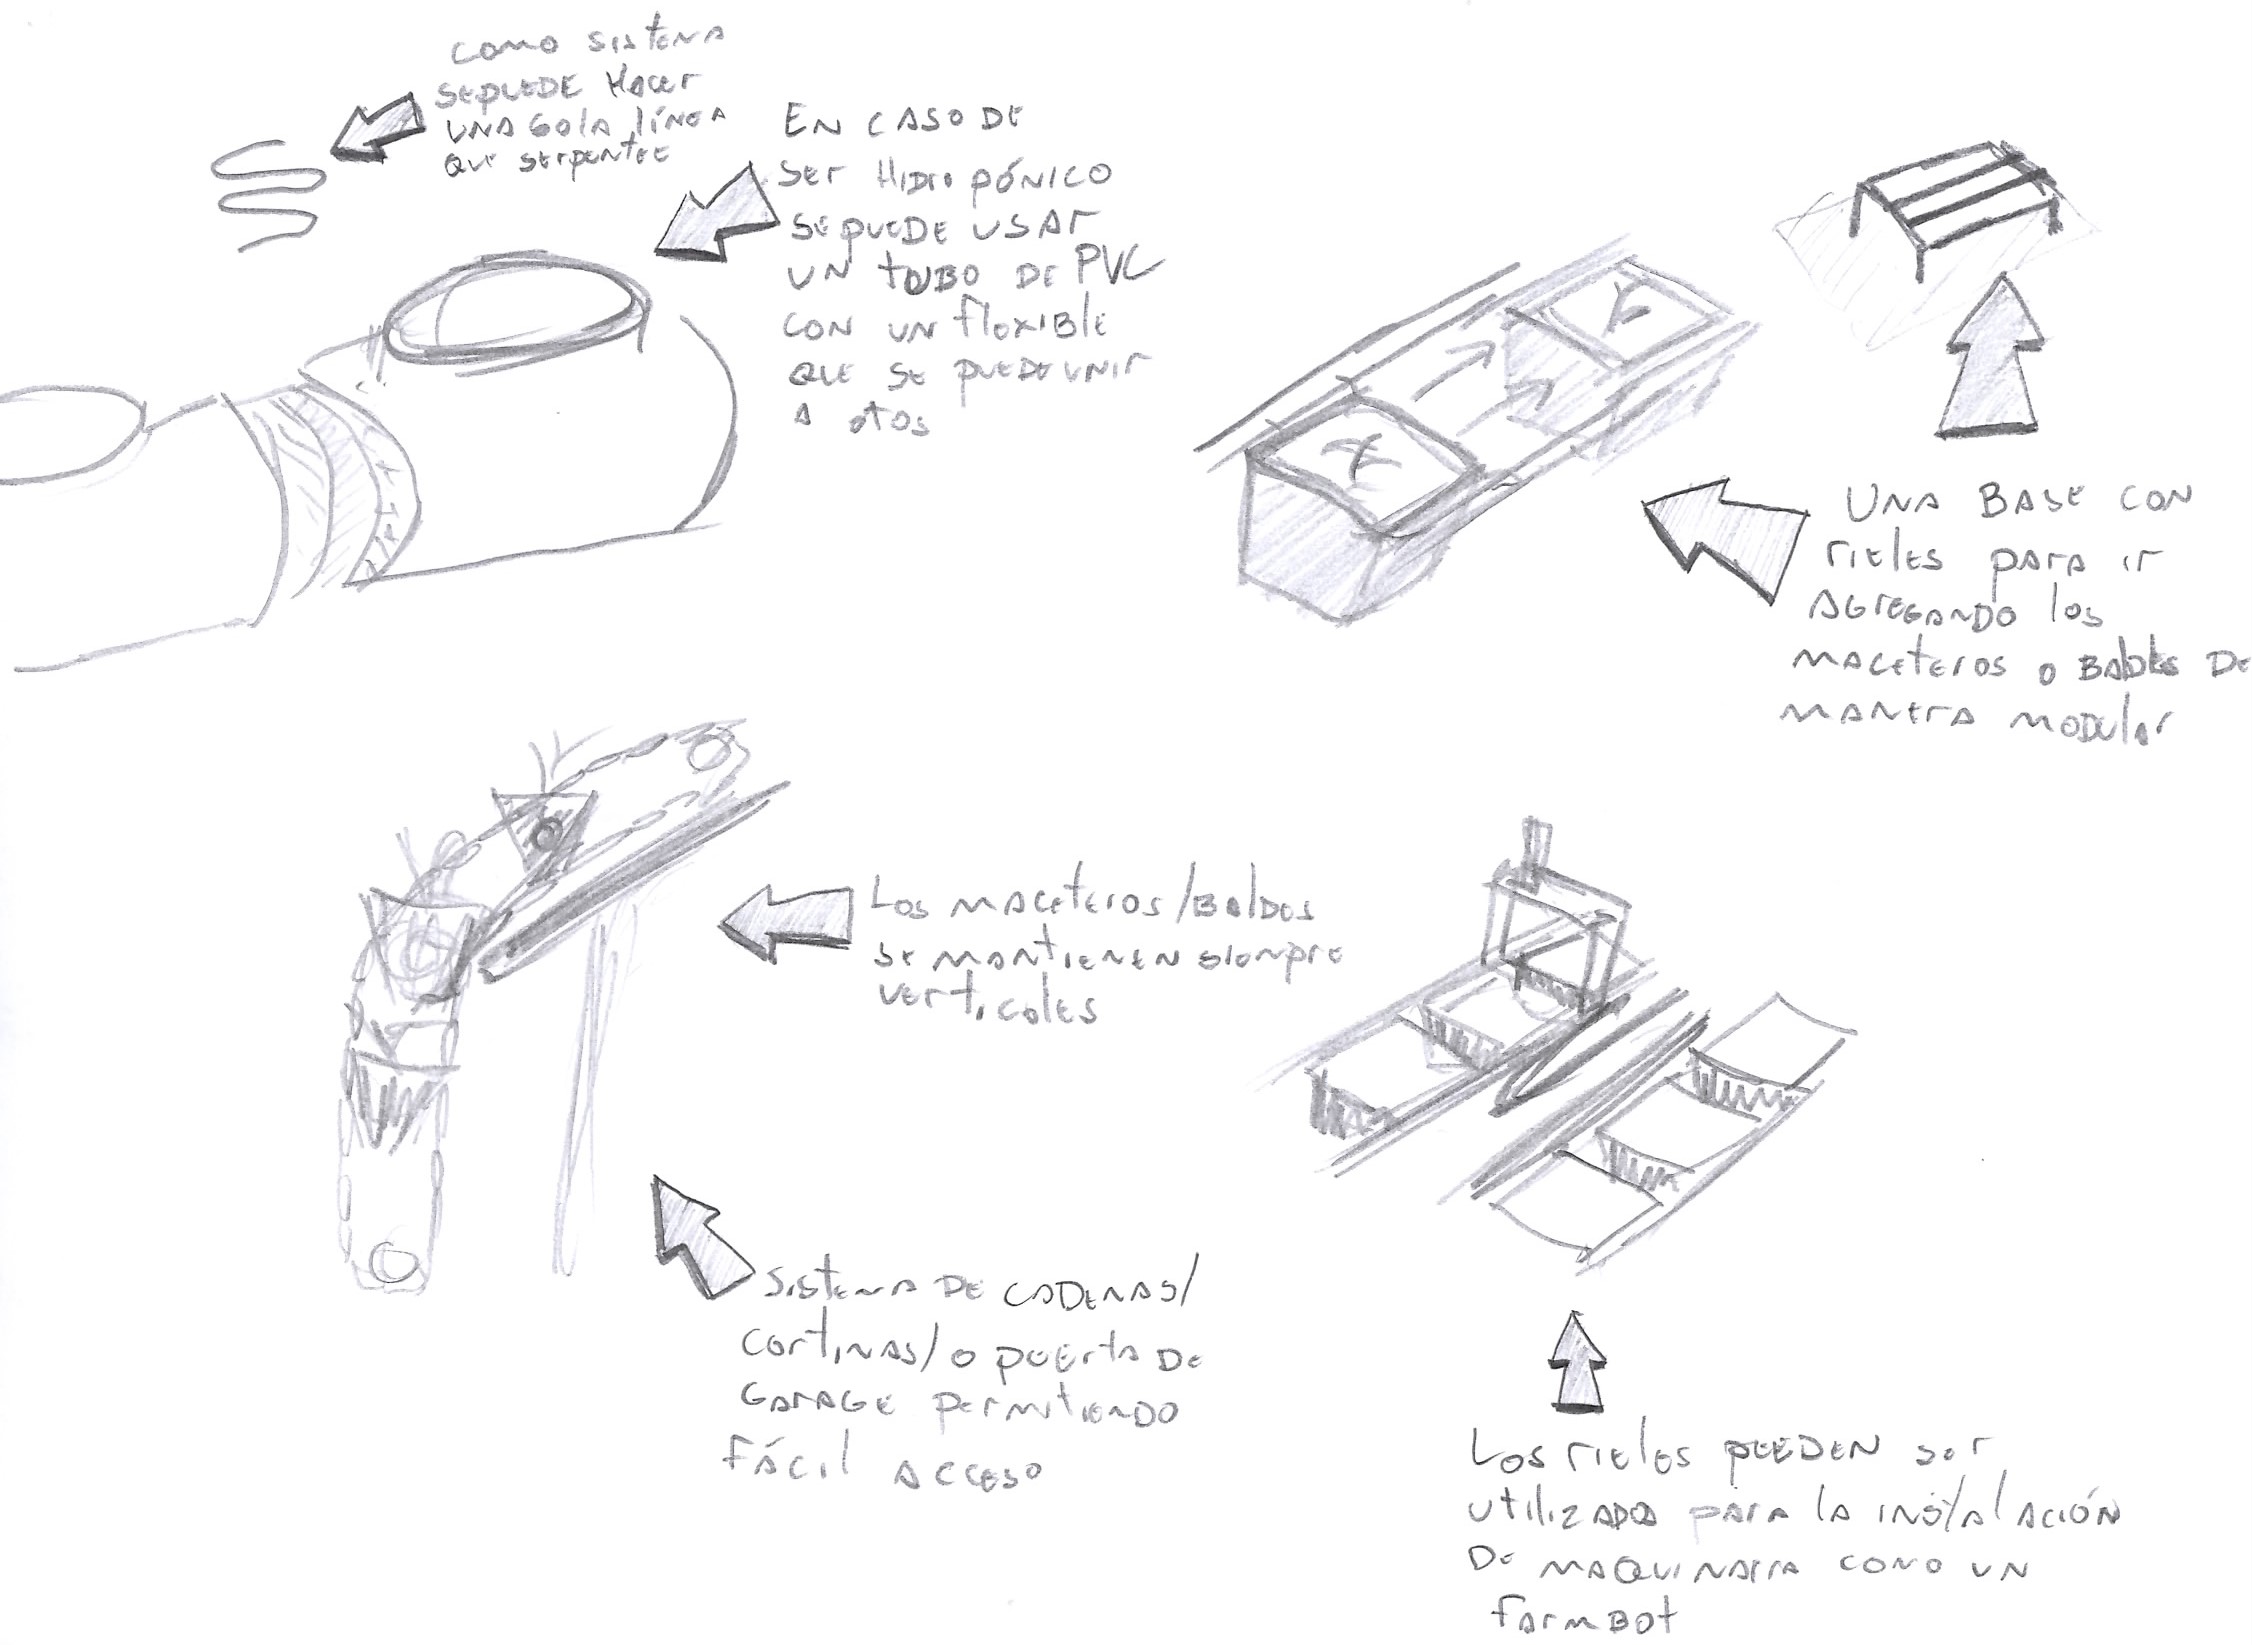 COMO SISTEMA
SEPUEDE HACER
UNA SOLA LÍNEA
QUE SERPENTEE
EN CASO DE
SER HIDROPÓNICO
SEPUEDE USAR
UN TUBO DE PVC
CON UN FLEXIBLE
QUE SE PUEDE UNIR
A OTOS
UNA BASE CON
RIELES PARA IR
AGREGANDO LOS
MACETEROS O BALDES DE
MANERA MODULAR
LOS MACETEROS/BALDES
SE MANTIENEN SIEMPRE
VERTICALES
SISTEMA DE CADENAS/
CORTINAS/O PUERTA DE
GARAGE PERMITIENDO
FÁCIL ACCESO
LOS RIELES PUEDEN SER
UTILIZADOS PARA LA INSTALACIÓN
DE MAQUINARIA COMO UN
FARMBOT